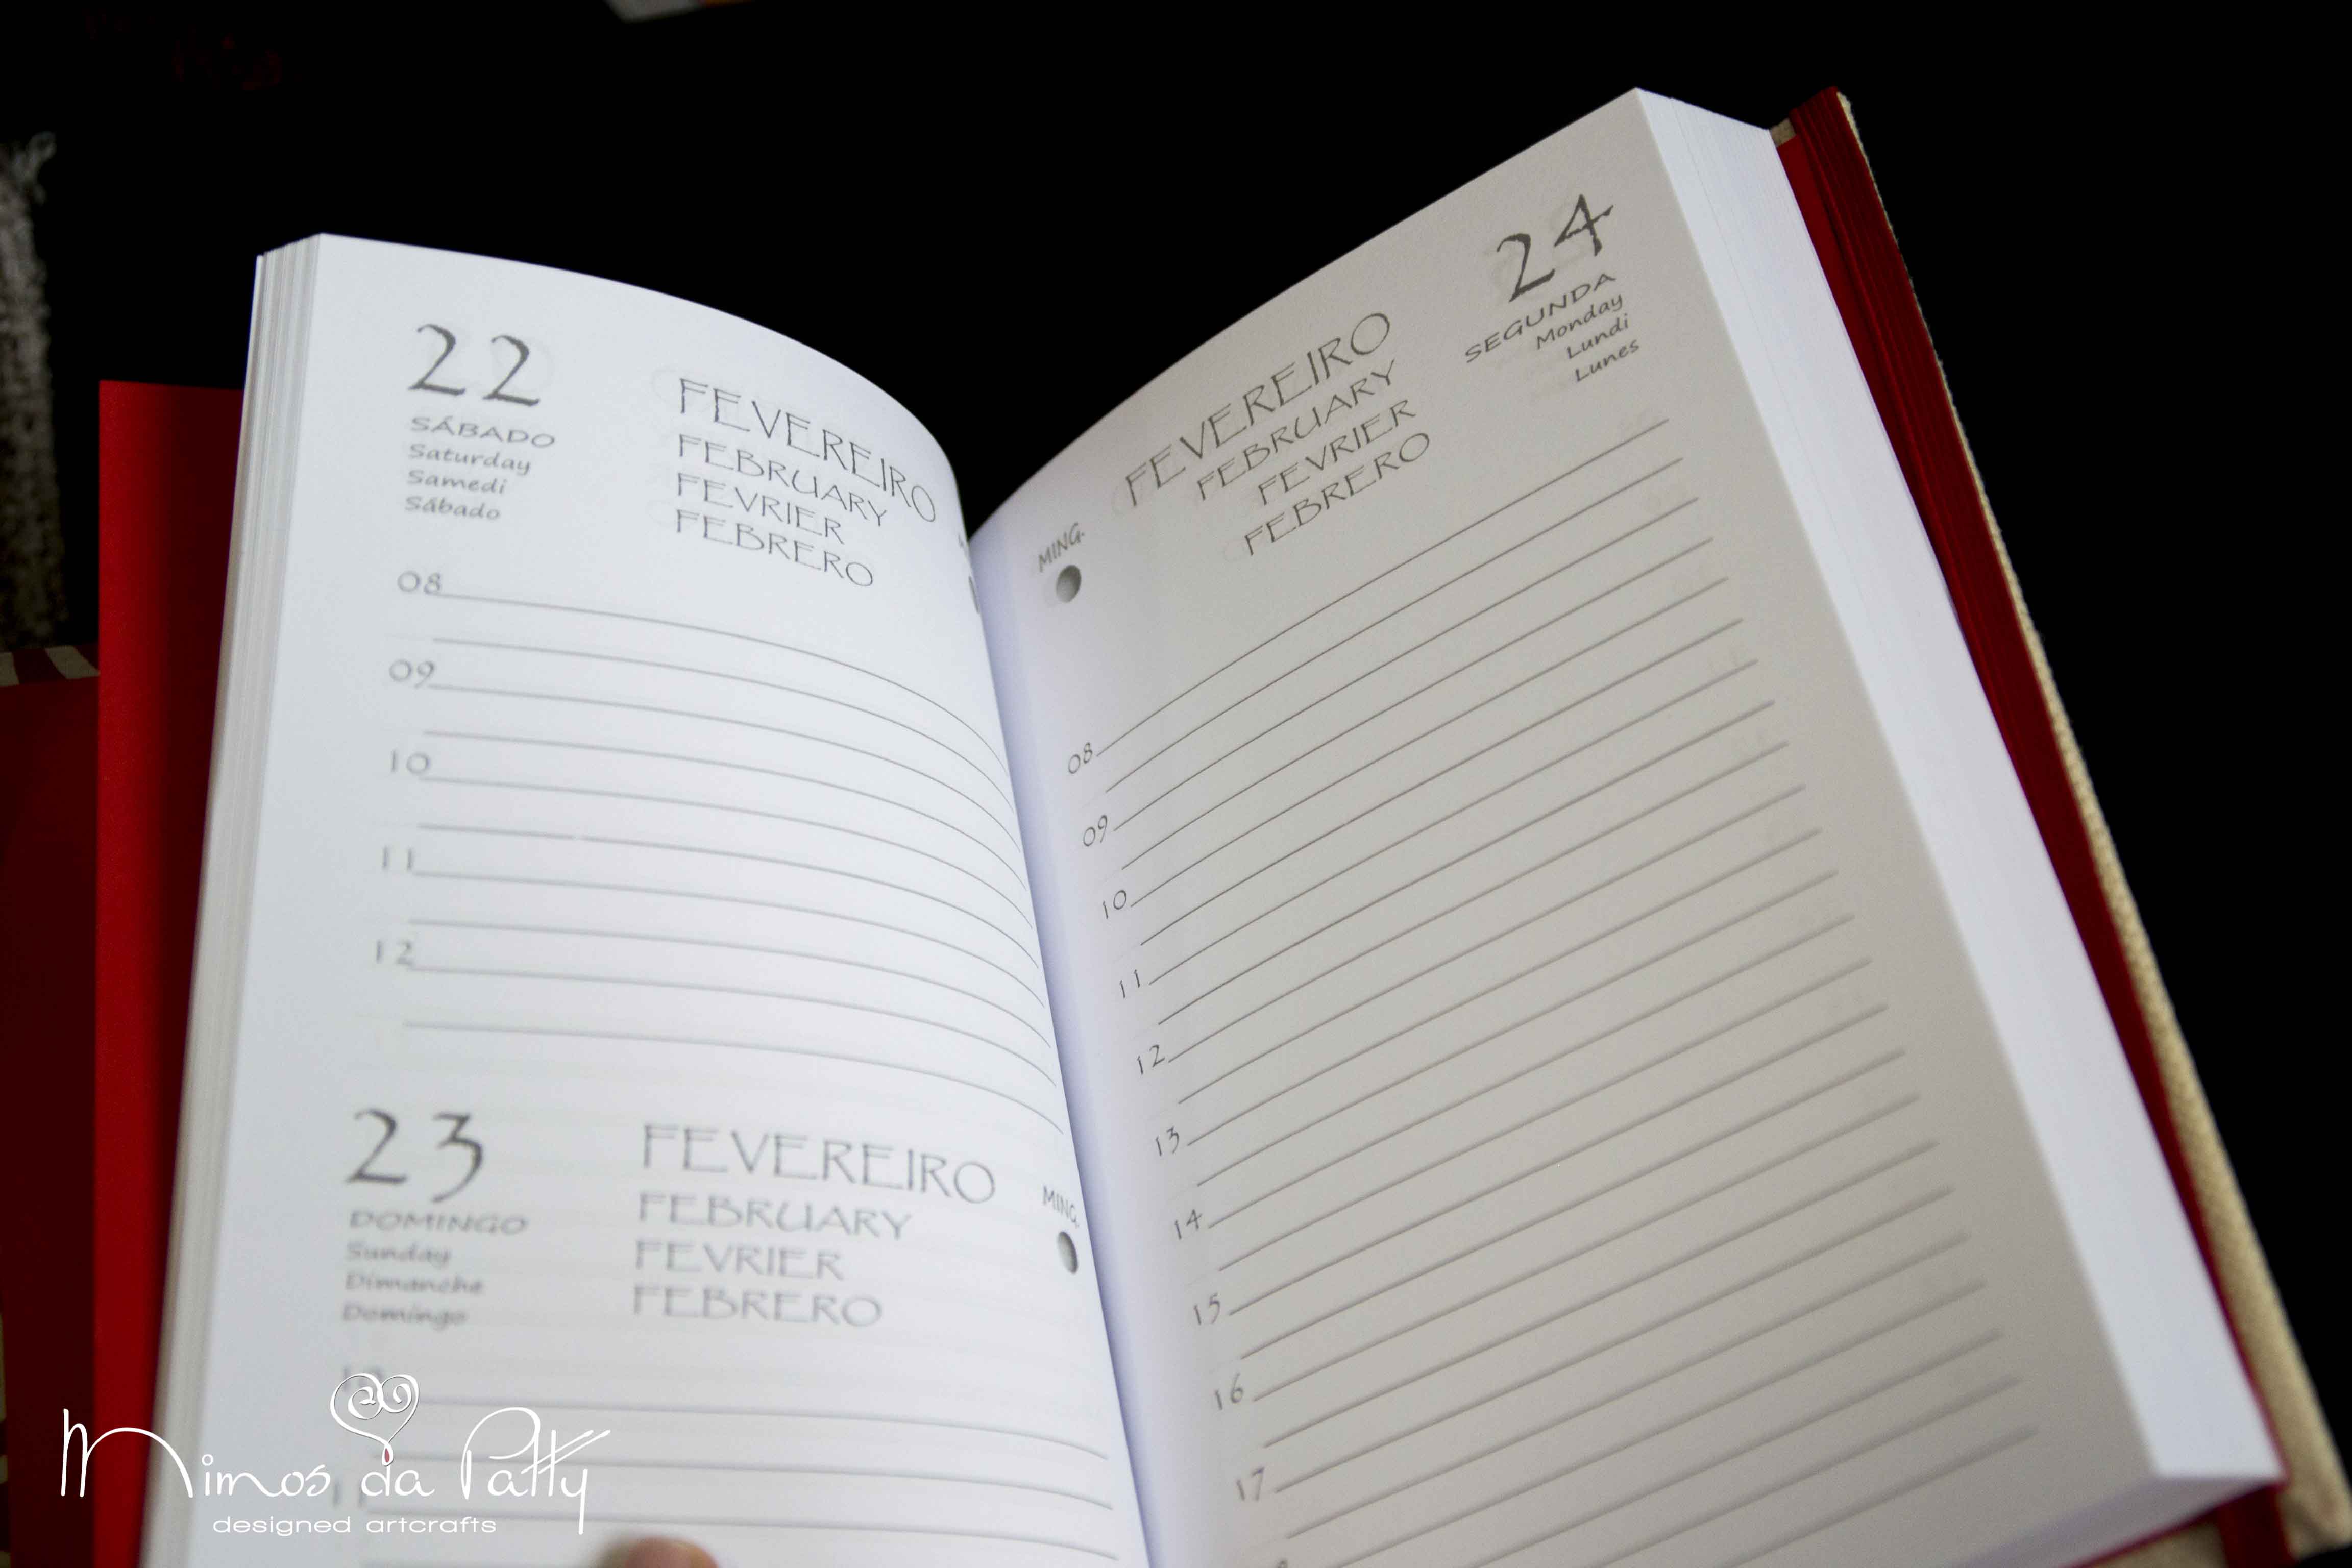 22
SÁBADO
Saturday
Samedi
Sábado
FEVEREIRO
FEBRUARY
FEVRIER
FEBRERO
08
09
10
11
12
23
DOMINGO
Sunday
Dimanche
Domingo
FEVEREIRO
FEBRUARY
FEVRIER
FEBRERO
MING.
24
SEGUNDA
Monday
Lundi
Lunes
FEVEREIRO
FEBRUARY
FEVRIER
FEBRERO
MING.
08
09
10
11
12
13
14
15
16
17
Mimos da Patty
designed artcrafts